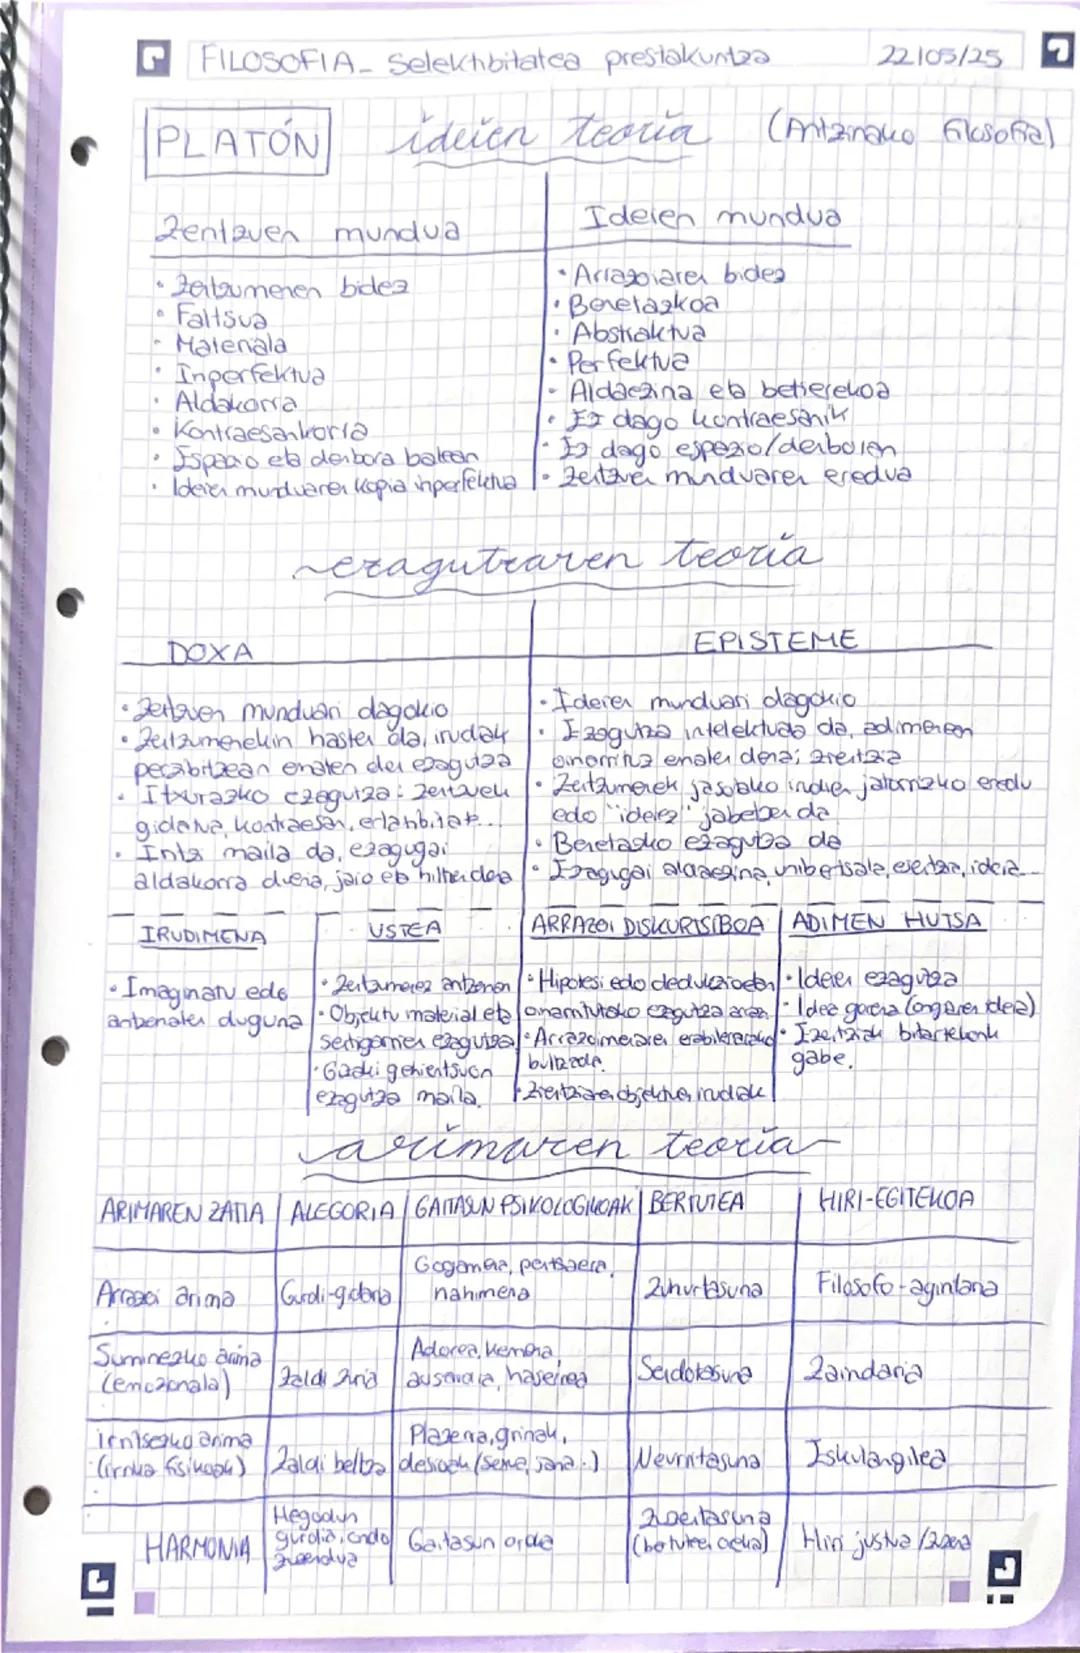 FILOSOFIA_ Selektibitatea prestakuntza 22/05/25
PLATÓN ideien teoria (Antzinako filosofia)
Zentzuen mundua
Ideien mundua
· Zentzumenen bidez
· Faltsua
· Materiala
· Inperfektua
· Aldakorra
· Kontraesankorra
· Espazio eta denbora batean
· Ideien munduaren kopia inperfektua
· Arrazoiaren bidez
· Benetazkoa
· Abstraktua
· Perfektua
· Aldaezina eta betierekoa
· Ez dago kontraesanik
· Ez dago espazio/denboran
· Zentzuen munduaren eredua
ezagutzaren teoria
DOXA
EPISTEME
· Zentzuen munduari dagokio
· Zentzumenekin hasten da, irudiak
pertzibitzean ematen den ezagutza
· Itxurazko ezagutza: zentzuek
gidatua, kontraesan, erlatibitate...
· maila da, ezagugai
aldakorra duena, jaio eta hiltzen dena
· Ideien munduari dagokio
· Ezagutza intelektuala da, adimenean
oinarrituz ematen dena; zientzia
· Zentzumenek jasotako irudien jatorrizko eredu
edo "ideiez" jabetzen da
· Benetazko ezagutza da
· Ezagugai aldaezina, unibertsala, esentzia, ideia...
IRUDIMENA
USTEA
ARRAZOI DISKURTSIBOA
ADIMEN HUTSA
· Imaginatu edo
antzematen duguna
· Zentzumenez antzematen
· Objektu material eta
sentigarrien ezagutza
· Gizaki gehientsuen
ezagutza maila.
· Hipotesi edo dedukzioetan
oinarritutako ezagutza
· Arrazoimenaren erabilerarako
bultzada.
· Zientziaren objektuen irudiak
· Ideien ezagutza
· Idea gorena (ongiaren ideia)
· bitartekorik
gabe.
arimaren teoria
ARIMAREN ZATIA | ALEGORIA | GAITASUN PSIKOLOGIKOAK | BERTUTEA | HIRI-EGITEKOA
Gogamena, pertzaera,
Arrazoi arima | Gurdi-gidaria | nahimena | Zuhurtasuna | Filosofo-agintaria
Suminezko arima | Adorea, kemena,
(emozionala) | Zaldi zuria | ausardia, haserrea | Sendotasuna | Zaindaria
irritsezko arima | Plazerra, grinak,
(irrika fisikoak) | Zaldi beltza | desioak (sexua, jana..) | Neurritasuna | Eskulangilea
Hegodun | Zuzentasuna
HARMONIA | gurdia, ondo | Gaitasun orden | (bertuteen ordena) | Hiri justua/zuzena
zuzendua